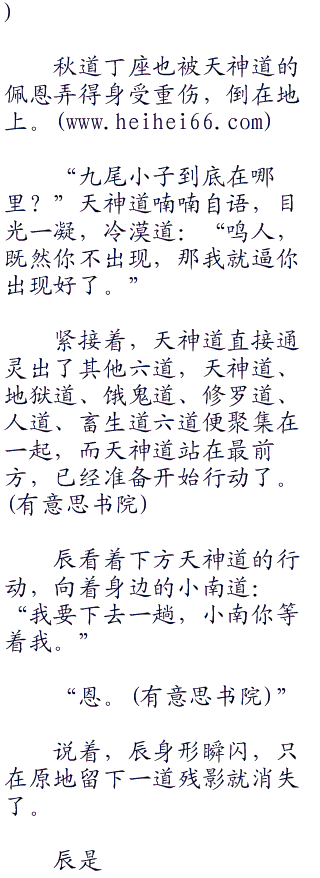 )
秋道丁座也被天神道的
佩恩弄得身受重伤，倒在地
上。(www.heihei66.com)
“九尾小子到底在哪
里？”天神道喃喃自语，目
光一凝，冷漠道：“鸣人，
既然你不出现，那我就逼你
出现好了。”
紧接着，天神道直接通
灵出了其他六道，天神道、
地狱道、饿鬼道、修罗道、
人道、畜生道六道便聚集在
一起，而天神道站在最前
方，已经准备开始行动了。
(有意思书院)
辰看着下方天神道的行
动，向着身边的小南道：
“我要下去一趟，小南你等
着我。”
“恩。(有意思书院)”
说着，辰身形瞬闪，只
在原地留下一道残影就消失
了。
辰是